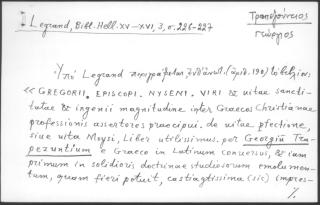 Τραπεζούντιος
Γεώργιος
Legrand, Bibl. Hell. XV–XVI, 3, σ. 226-227
Ὑπό Legrand περιγράφεται (ἀριθ. 190) τὸ βιβλίον:
« GREGORII EPISCOPI NYSENI. VIRI & vitae sancti-
tatae & ingenii magnitudine inter Graecos Christianae
professionis assertores praecipui. de vitae pfectione,
siue vita Moysi, Liber utilissimus. per Georgiũ Tra-
pezuntium e Graeco in Latinum conversus, & iam
primum in solidioris doctrinae studiosorum emolumen-
tum, quam fieri potuit, castiagtissima (sic) impres-
%